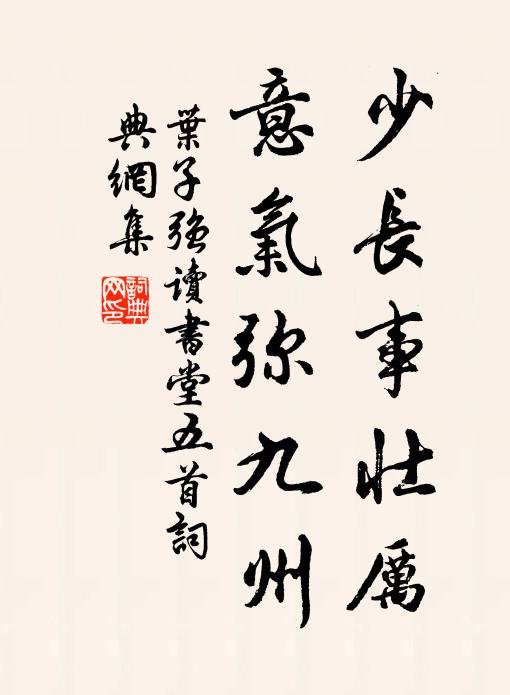 少長事壯厲
意氣弥九州
葉子强讀書堂五首詞
典網集
詞典
网印